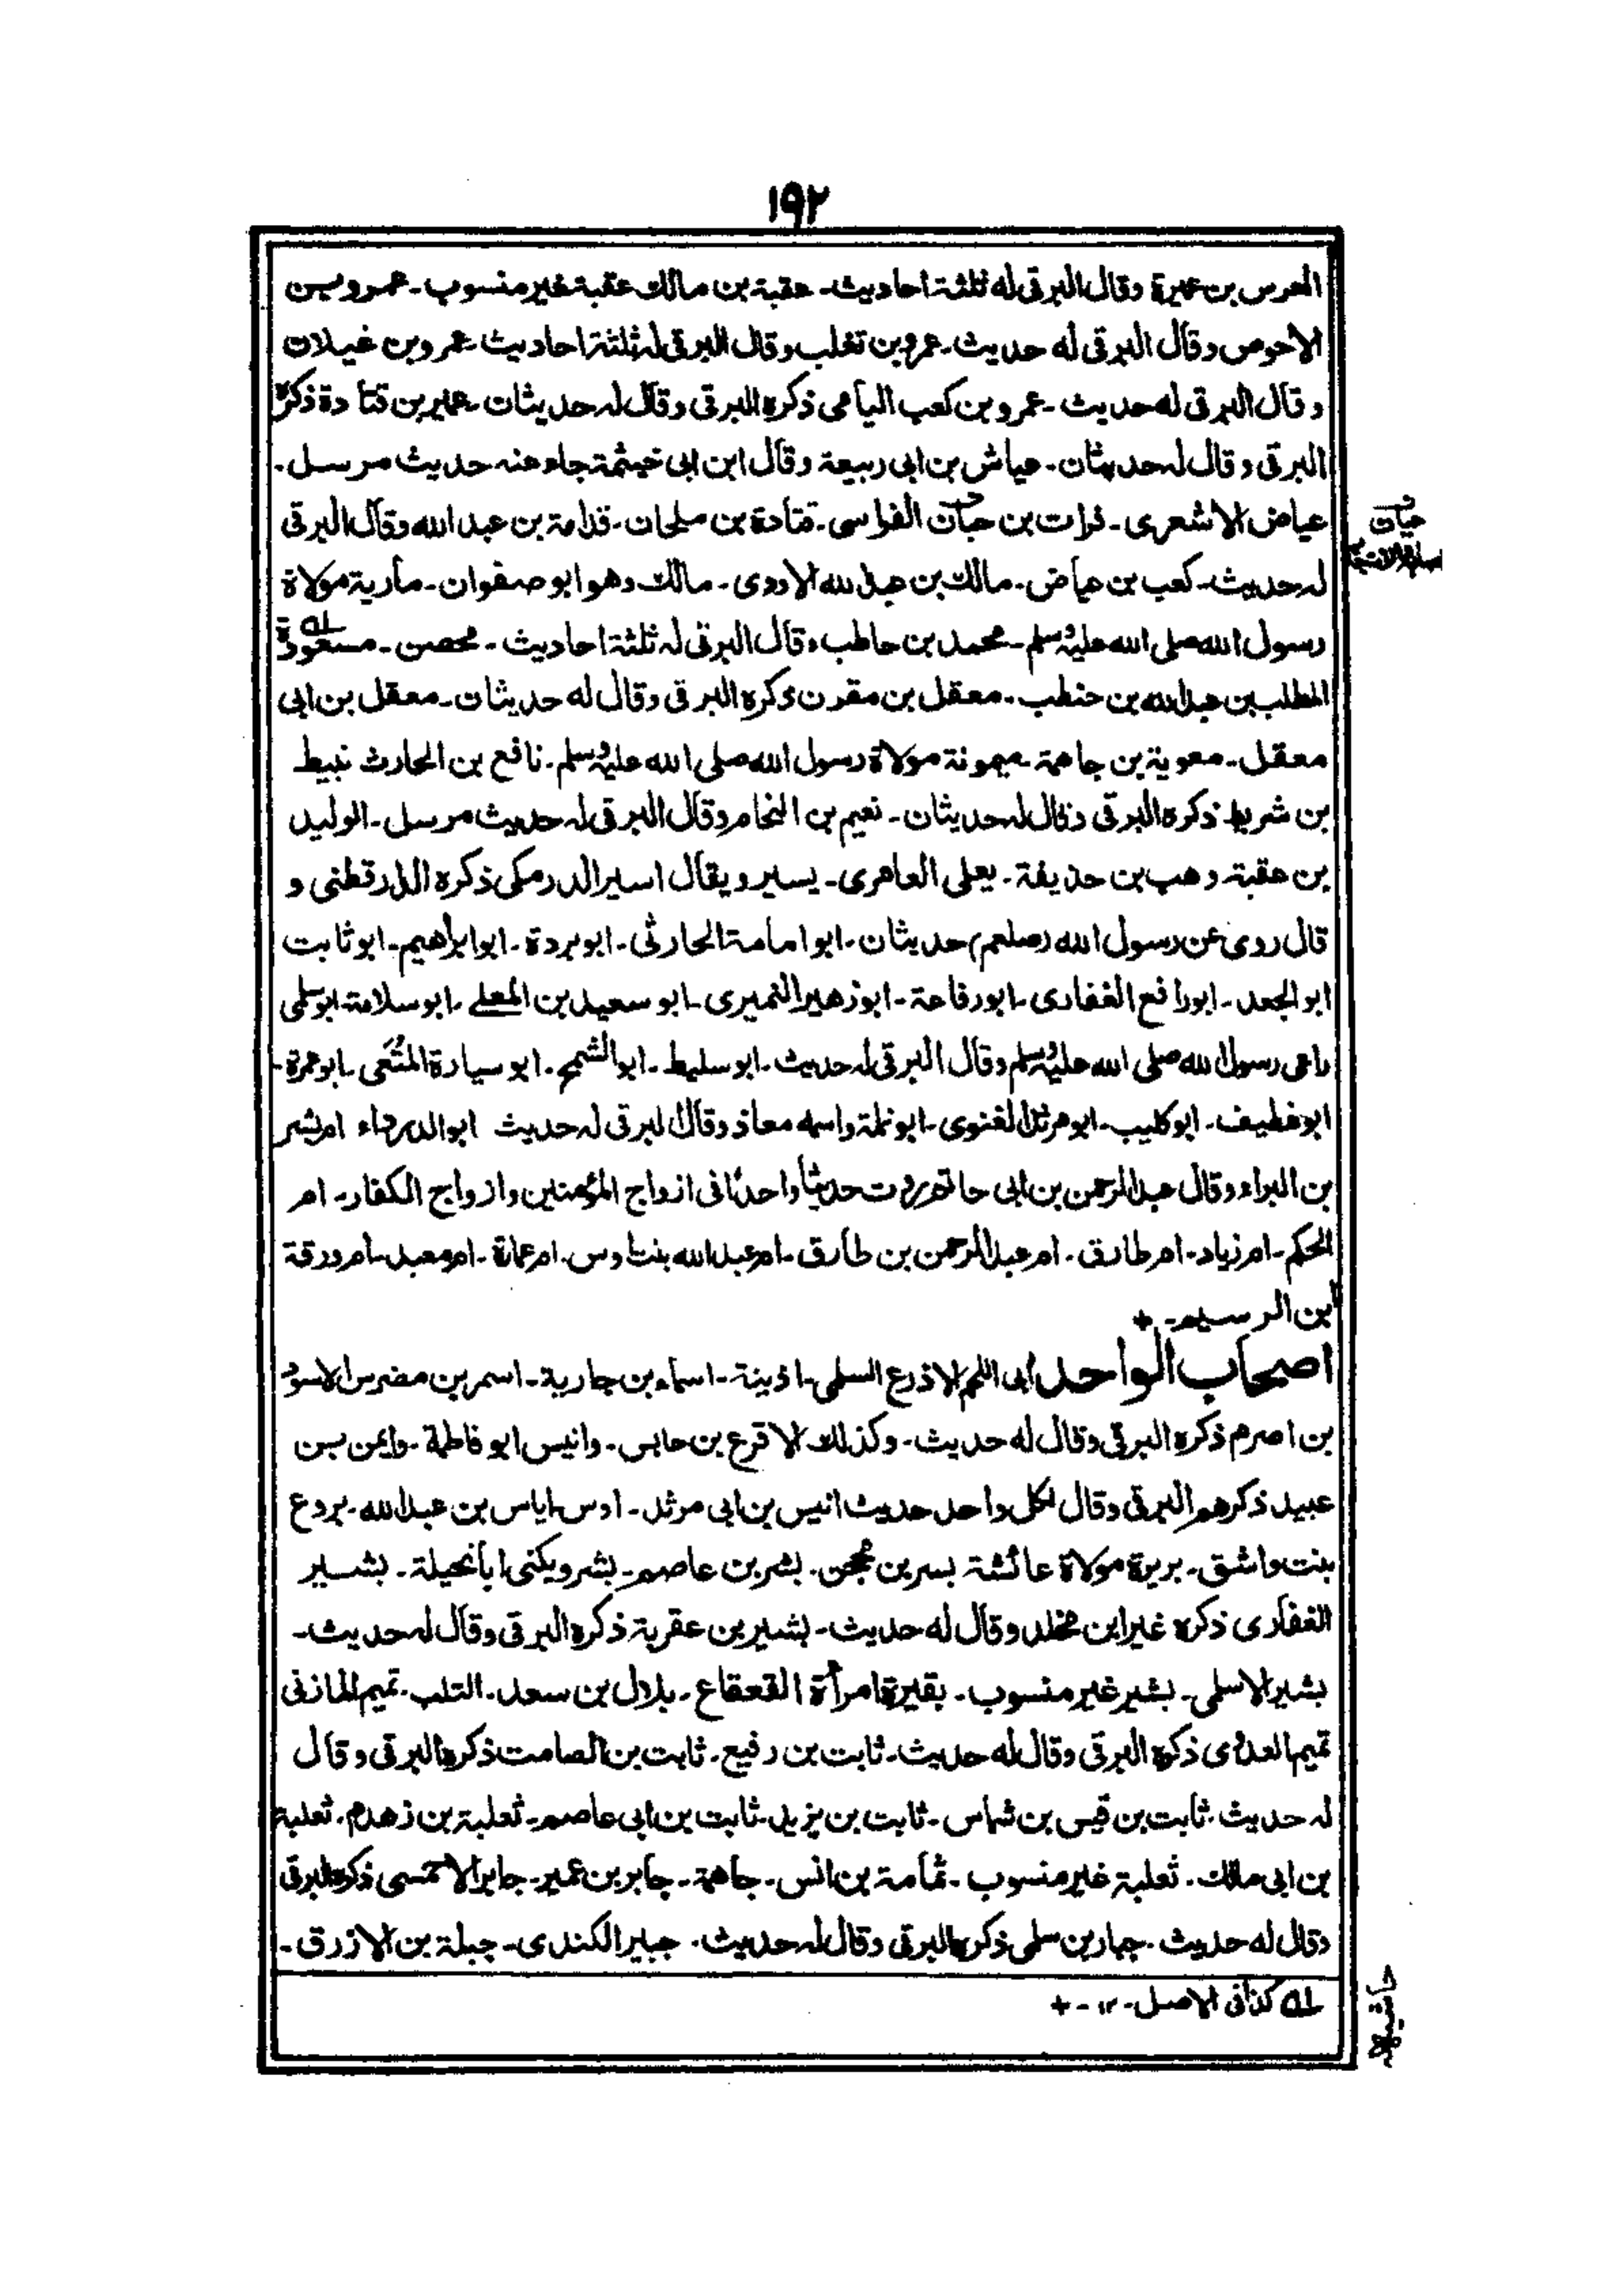 ١٩٢
العرس بن عميرة وقال البرقى له ثلثة احاديث۔ عقبة بن مالك عقبة غير منسوب۔ عمرو بن
الاحوص وقال البرقى له حديث۔ عمرو بن تغلب وقال البرقى له ثلثة احاديث۔ عمرو بن غيلان
وقال البرقى له حديث۔ عمرو بن كعب اليامى ذكره البرقى وقال له حديثان۔ عمير بن قتادة ذكره
البرقى وقال له حديثان۔ عياش بن ابى ربيعة وقال ابن ابى خيثمة جاء عنه حديث مرسل۔
عياض الاشعرى۔ فرات بن حيان الفراسى۔ قتادة بن ملحان۔ قدامة بن عبد الله وقال البرقى
حيان
له حديث۔ كعب بن عياض۔ مالك بن عبد الله الاودى۔ مالك وهو ابو صفوان۔ مارية مولاة
رسول الله صلى الله عليه وسلم۔ محمد بن حاطب وقال البرقى له ثلثة احاديث۔ محصن۔ مسعود له
المطلب بن عبد الله بن حنطب۔ معقل بن مقرن ذكره البرقى وقال له حديثان۔ معقل بن ابى
معقل۔ معوية بن جاهمة۔ ميمونة مولاة رسول الله صلى الله عليه وسلم۔ نافع بن الحارث نبيط
بن شريط ذكره البرقى وقال له حديثان۔ نعيم بن النحام وقال البرقى له حديث مرسل۔ الوليد
بن عقبة وهب بن حذيفة۔ يعلى العامرى۔ يسير ويقال اسير الدرمكى ذكره الدارقطنى و
قال روى عن رسول الله (صلعم) حديثان۔ ابو امامة الحارثى۔ ابو بردة۔ ابو ابراهيم۔ ابو ثابت
ابو الجعد۔ ابو رافع الغفارى۔ ابو رفاعة۔ ابو زهير النميرى۔ ابو سعيد بن المعلے۔ ابو سلامة ابو سلمى
راعى رسول الله صلى الله عليه وسلم وقال البرقى له حديث۔ ابو سليط۔ ابو الشمح۔ ابو سيارة المتعى۔ ابو عمرة۔
ابو غطيف۔ ابو كليب۔ ابو مرثد الغنوى۔ ابو نملة واسمه معاذ وقال البرقى له حديث ابو الدرداء ام بشر
بن البراء وقال عبد الرحمن بن ابى حاتم روت حديثا واحدًا فى ازواج المؤمنين وازواج الكفار۔ ام
الحكم۔ ام زياد۔ ام طارق۔ ام عبد الرحمن بن طارق۔ ام عبد الله بنت اوس۔ ام عمارة۔ ام معبد۔ ام ورقة
ابن الرسيم۔ +
اصحاب الواحد ابى اللحم الاذرع السلمى۔ اذينة۔ اسماء بن جارية۔ اسمر بن مضرس الاسود
بن اصرم ذكره البرقى وقال له حديث۔ وكذلك الاقرع بن حابس۔ وانيس ابو فاطمة۔ وايمن بن
عبيد ذكرهم البرقى وقال لكل واحد حديث انيس بن ابى مرثد۔ اوس۔ اياس بن عبد الله۔ بروع
بنت واشق۔ بريرة مولاة عائشة بسر بن محجن۔ بشر بن عاصم۔ بشر ويكنى ابا نحيلة۔ بشير
الغفارى ذكره غير ابن مخلد وقال له حديث۔ بشير بن عقربة ذكره البرقى وقال له حديث۔
بشير الاسلمى۔ بشير غير منسوب۔ بقيرة امرأة القعقاع۔ بلال بن سعد۔ التلب۔ تميم المازنى
تميم العدوى ذكره البرقى وقال له حديث۔ ثابت بن رفيع۔ ثابت بن الصامت ذكره البرقى وقال
له حديث۔ ثابت بن قيس بن شماس۔ ثابت بن يزيد۔ ثابت بن ابى عاصم۔ ثعلبة بن زهدم۔ ثعلبة
بن ابى مالك۔ ثعلبة غير منسوب۔ ثمامة بن انس۔ جاهمة۔ جابر بن عمير۔ جابر الاحمسى ذكره البرقى
وقال له حديث۔ جبار بن سلمى ذكره البرقى وقال له حديث۔ جبير الكندى۔ جبلة بن الازرق۔
له كذا فى الاصل۔ ١٢۔ +
حاشيه